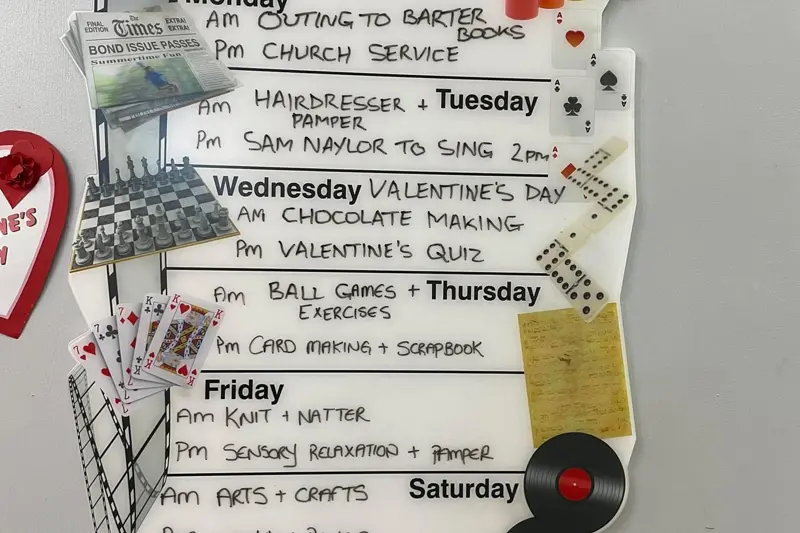 Monday
Am OUTING TO BARTER
BOOKS
Pm CHURCH SERVICE
FINAL EDITION
The Times
EXTRA! EXTRA!
BOND ISSUE PASSES
Summertime Fun
Am HAIRDRESSER + Tuesday
PAMPER
Pm SAM NAYLOR TO SING 2pm
Wednesday VALENTINE'S DAY
Am CHOCOLATE MAKING
Pm VALENTINE'S QUIZ
NE'S
Am BALL GAMES + Thursday
EXERCISES
Pm CARD MAKING + SCRAPBOOK
Friday
Am KNIT + NATTER
Pm SENSORY RELAXATION + PAMPER
Am ARTS + CRAFTS Saturday
A
A
A
A
A
A
7
7
K
K
K